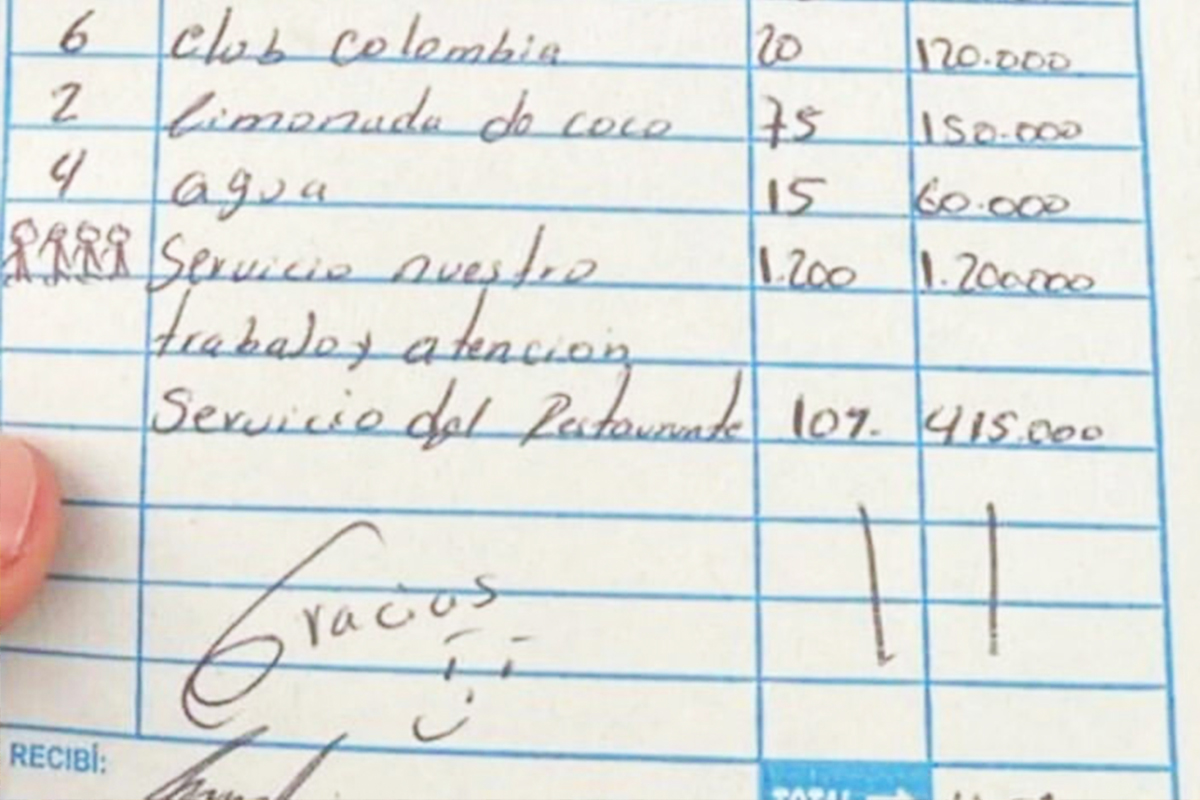 6 Club Colombia 20 120.000
2 limonada de coco 75 150.000
4 agua 15 60.000
Servicio nuestro 1.200 1.200.000
trabajo y atencion
Servicio del Restaurante 10%. 415.000
Gracias
RECIBÍ:
TOTAL